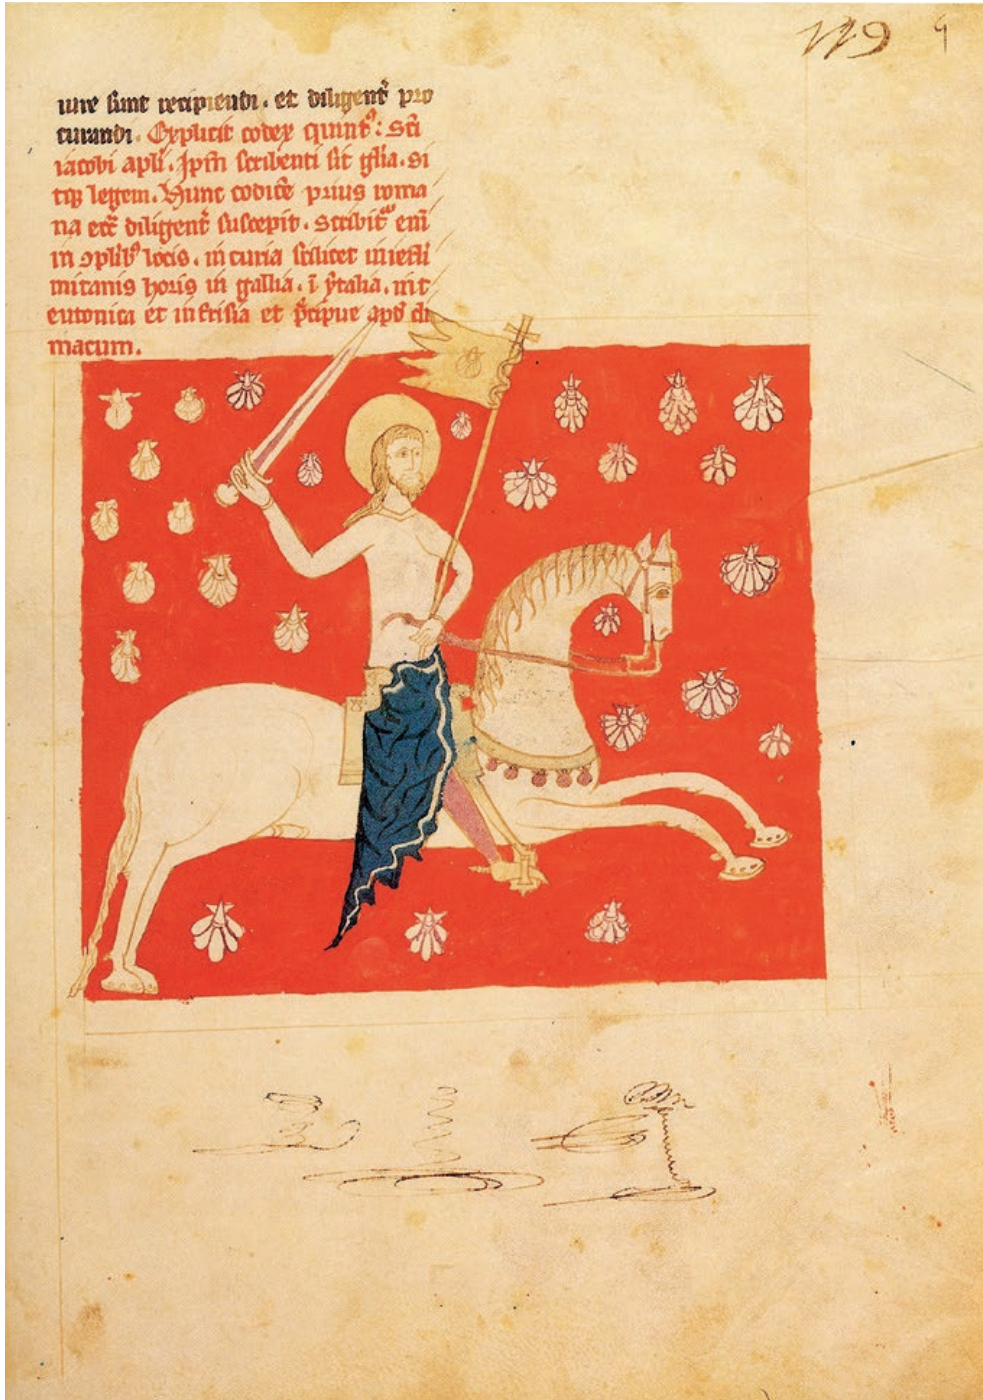 119 9
iure sunt recipiendi. et diligent᷑ pro
curandi. Explicit codex quint᷒: Sc̄i
iacobi apl̄i. Ip̄m scribenti sit gl̄ia. si
tꝙ legem. Hunc codicē prius roma
na ecc̄ diligent᷑ suscepit. Scribit᷑ eni̅
in ꝯplib᷒ locis. in curia scilicet in iesli
mitanis horis in gallia. ī ẏtalia. in t
eutonica et in frisia et p̄cipue apd̄ clu
macum.